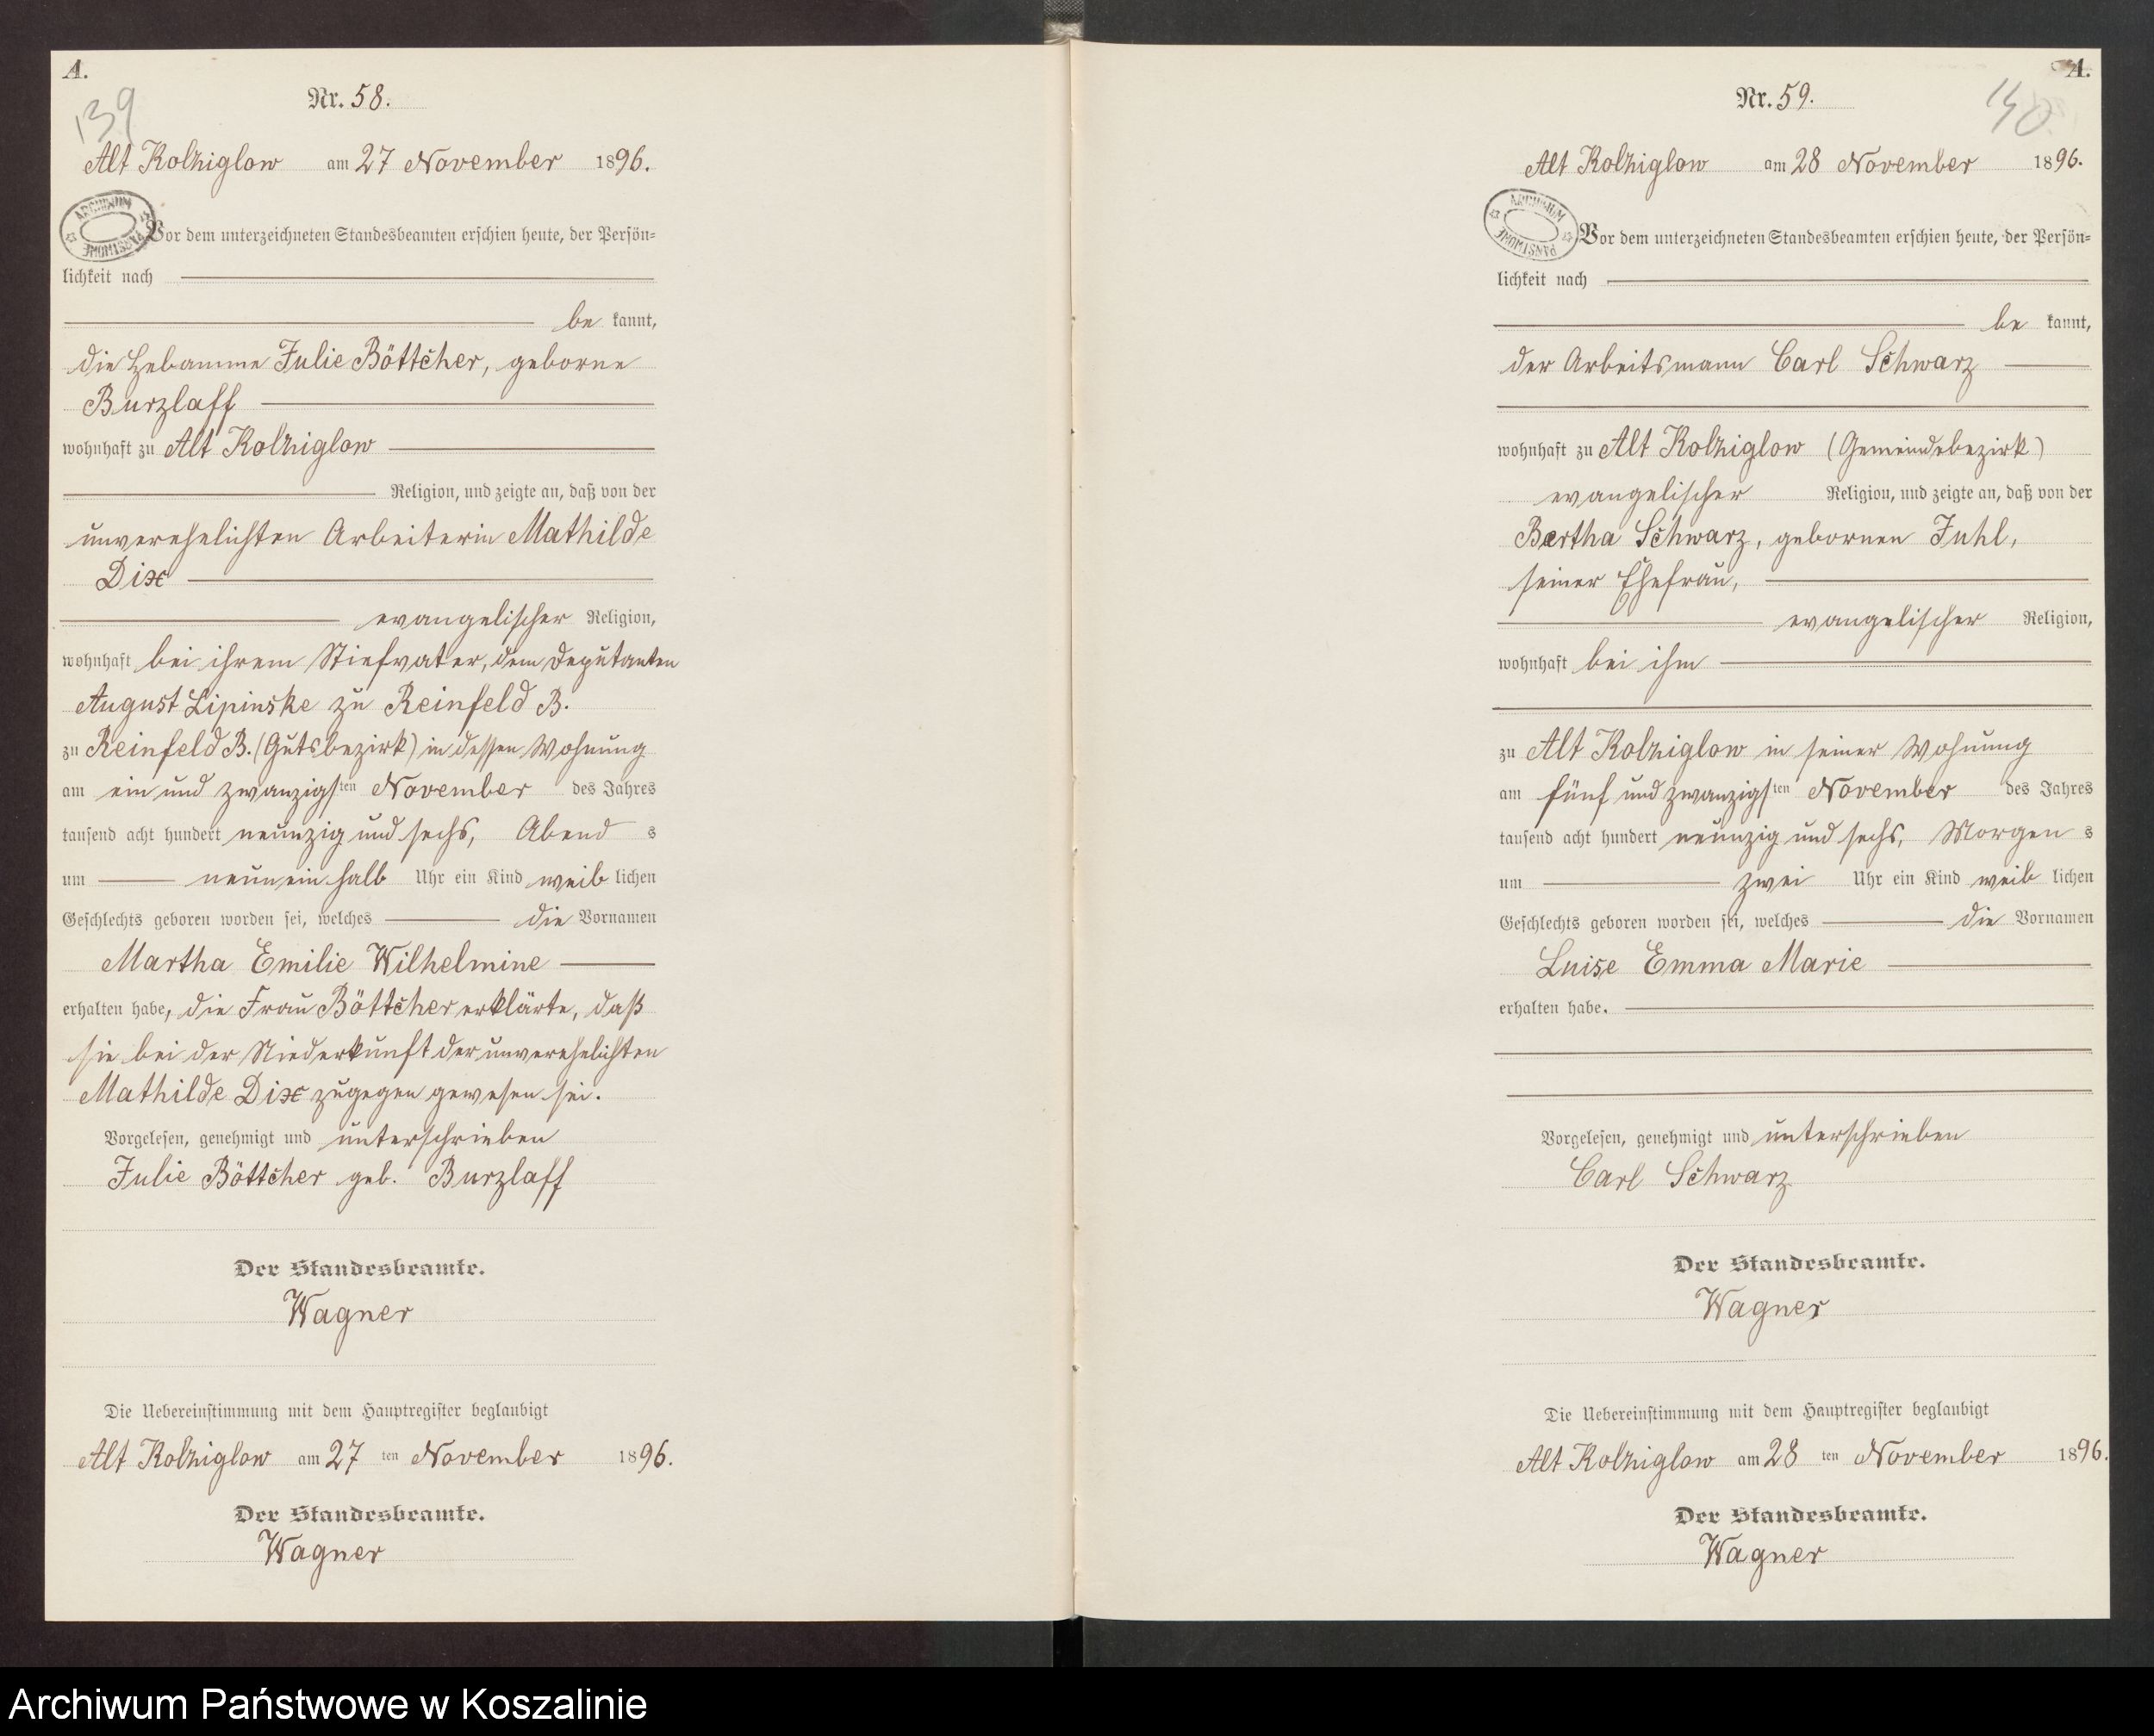 A.
139
Nr. 58.
Alt Kolziglow am 27 November 1896.
ARCHIWUM PAŃSTWOWE
Vor dem unterzeichneten Standesbeamten erschien heute, der Persön=
lichkeit nach
be kannt,
die Hebamme Julie Böttcher, geborne
Burzlaff
wohnhaft zu Alt Kolziglow
Religion, und zeigte an, daß von der
unverehelichten Arbeiterin Mathilde
Dix
evangelischer Religion,
wohnhaft bei ihrem Stiefvater, dem Deputanten
August Lipinske zu Reinfeld B.
zu Reinfeld B. (Gutsbezirk) in dessen Wohnung
am ein und zwanzigsten November des Jahres
tausend acht hundert neunzig und sechs, Abend s
um neun ein halb Uhr ein Kind weib lichen
Geschlechts geboren worden sei, welches die Vornamen
Martha Emilie Wilhelmine
erhalten habe, die Frau Böttcher erklärte, daß
sie bei der Niederkunft der unverehelichten
Mathilde Dix zugegen gewesen sei.
Vorgelesen, genehmigt und unterschrieben
Julie Böttcher geb. Burzlaff
Der Standesbeamte.
Wagner
Die Uebereinstimmung mit dem Hauptregister beglaubigt
Alt Kolziglow am 27 ten November 1896.
Der Standesbeamte.
Wagner
A.
140
Nr. 59.
Alt Kolziglow am 28 November 1896.
ARCHIWUM PAŃSTWOWE
Vor dem unterzeichneten Standesbeamten erschien heute, der Persön=
lichkeit nach
be kannt,
der Arbeitsmann Carl Schwarz
wohnhaft zu Alt Kolziglow (Gemeindebezirk)
evangelischer Religion, und zeigte an, daß von der
Bertha Schwarz, gebornen Juhl,
seiner Ehefrau,
evangelischer Religion,
wohnhaft bei ihm
zu Alt Kolziglow in seiner Wohnung
am fünf und zwanzigsten November des Jahres
tausend acht hundert neunzig und sechs, Morgen s
um zwei Uhr ein Kind weib lichen
Geschlechts geboren worden sei, welches die Vornamen
Luise Emma Marie
erhalten habe.
Vorgelesen, genehmigt und unterschrieben
Carl Schwarz
Der Standesbeamte.
Wagner
Die Uebereinstimmung mit dem Hauptregister beglaubigt
Alt Kolziglow am 28 ten November 1896.
Der Standesbeamte.
Wagner
Archiwum Państwowe w Koszalinie